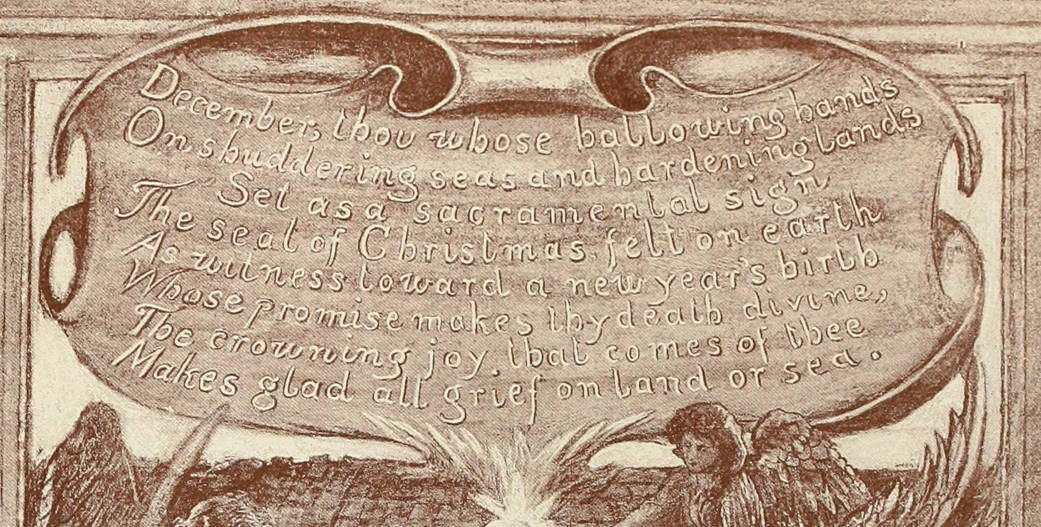 December, thou whose hallowing hands
On shuddering seas and hardening lands
Set as a sacramental sign
The seal of Christmas felt on earth
As witness toward a new year's birth
Whose promise makes thy death divine,
The crowning joy that comes of thee
Makes glad all grief on land or sea.